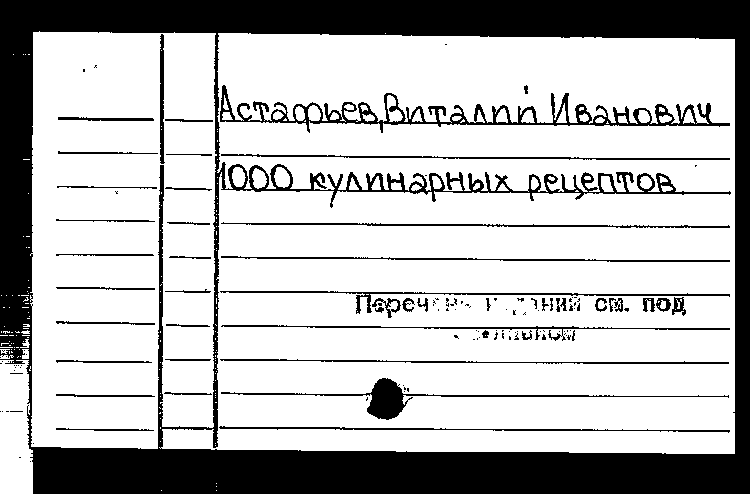 Астафьев, Виталий Иванович
1000 кулинарных рецептов.
Перечень изданий см. под